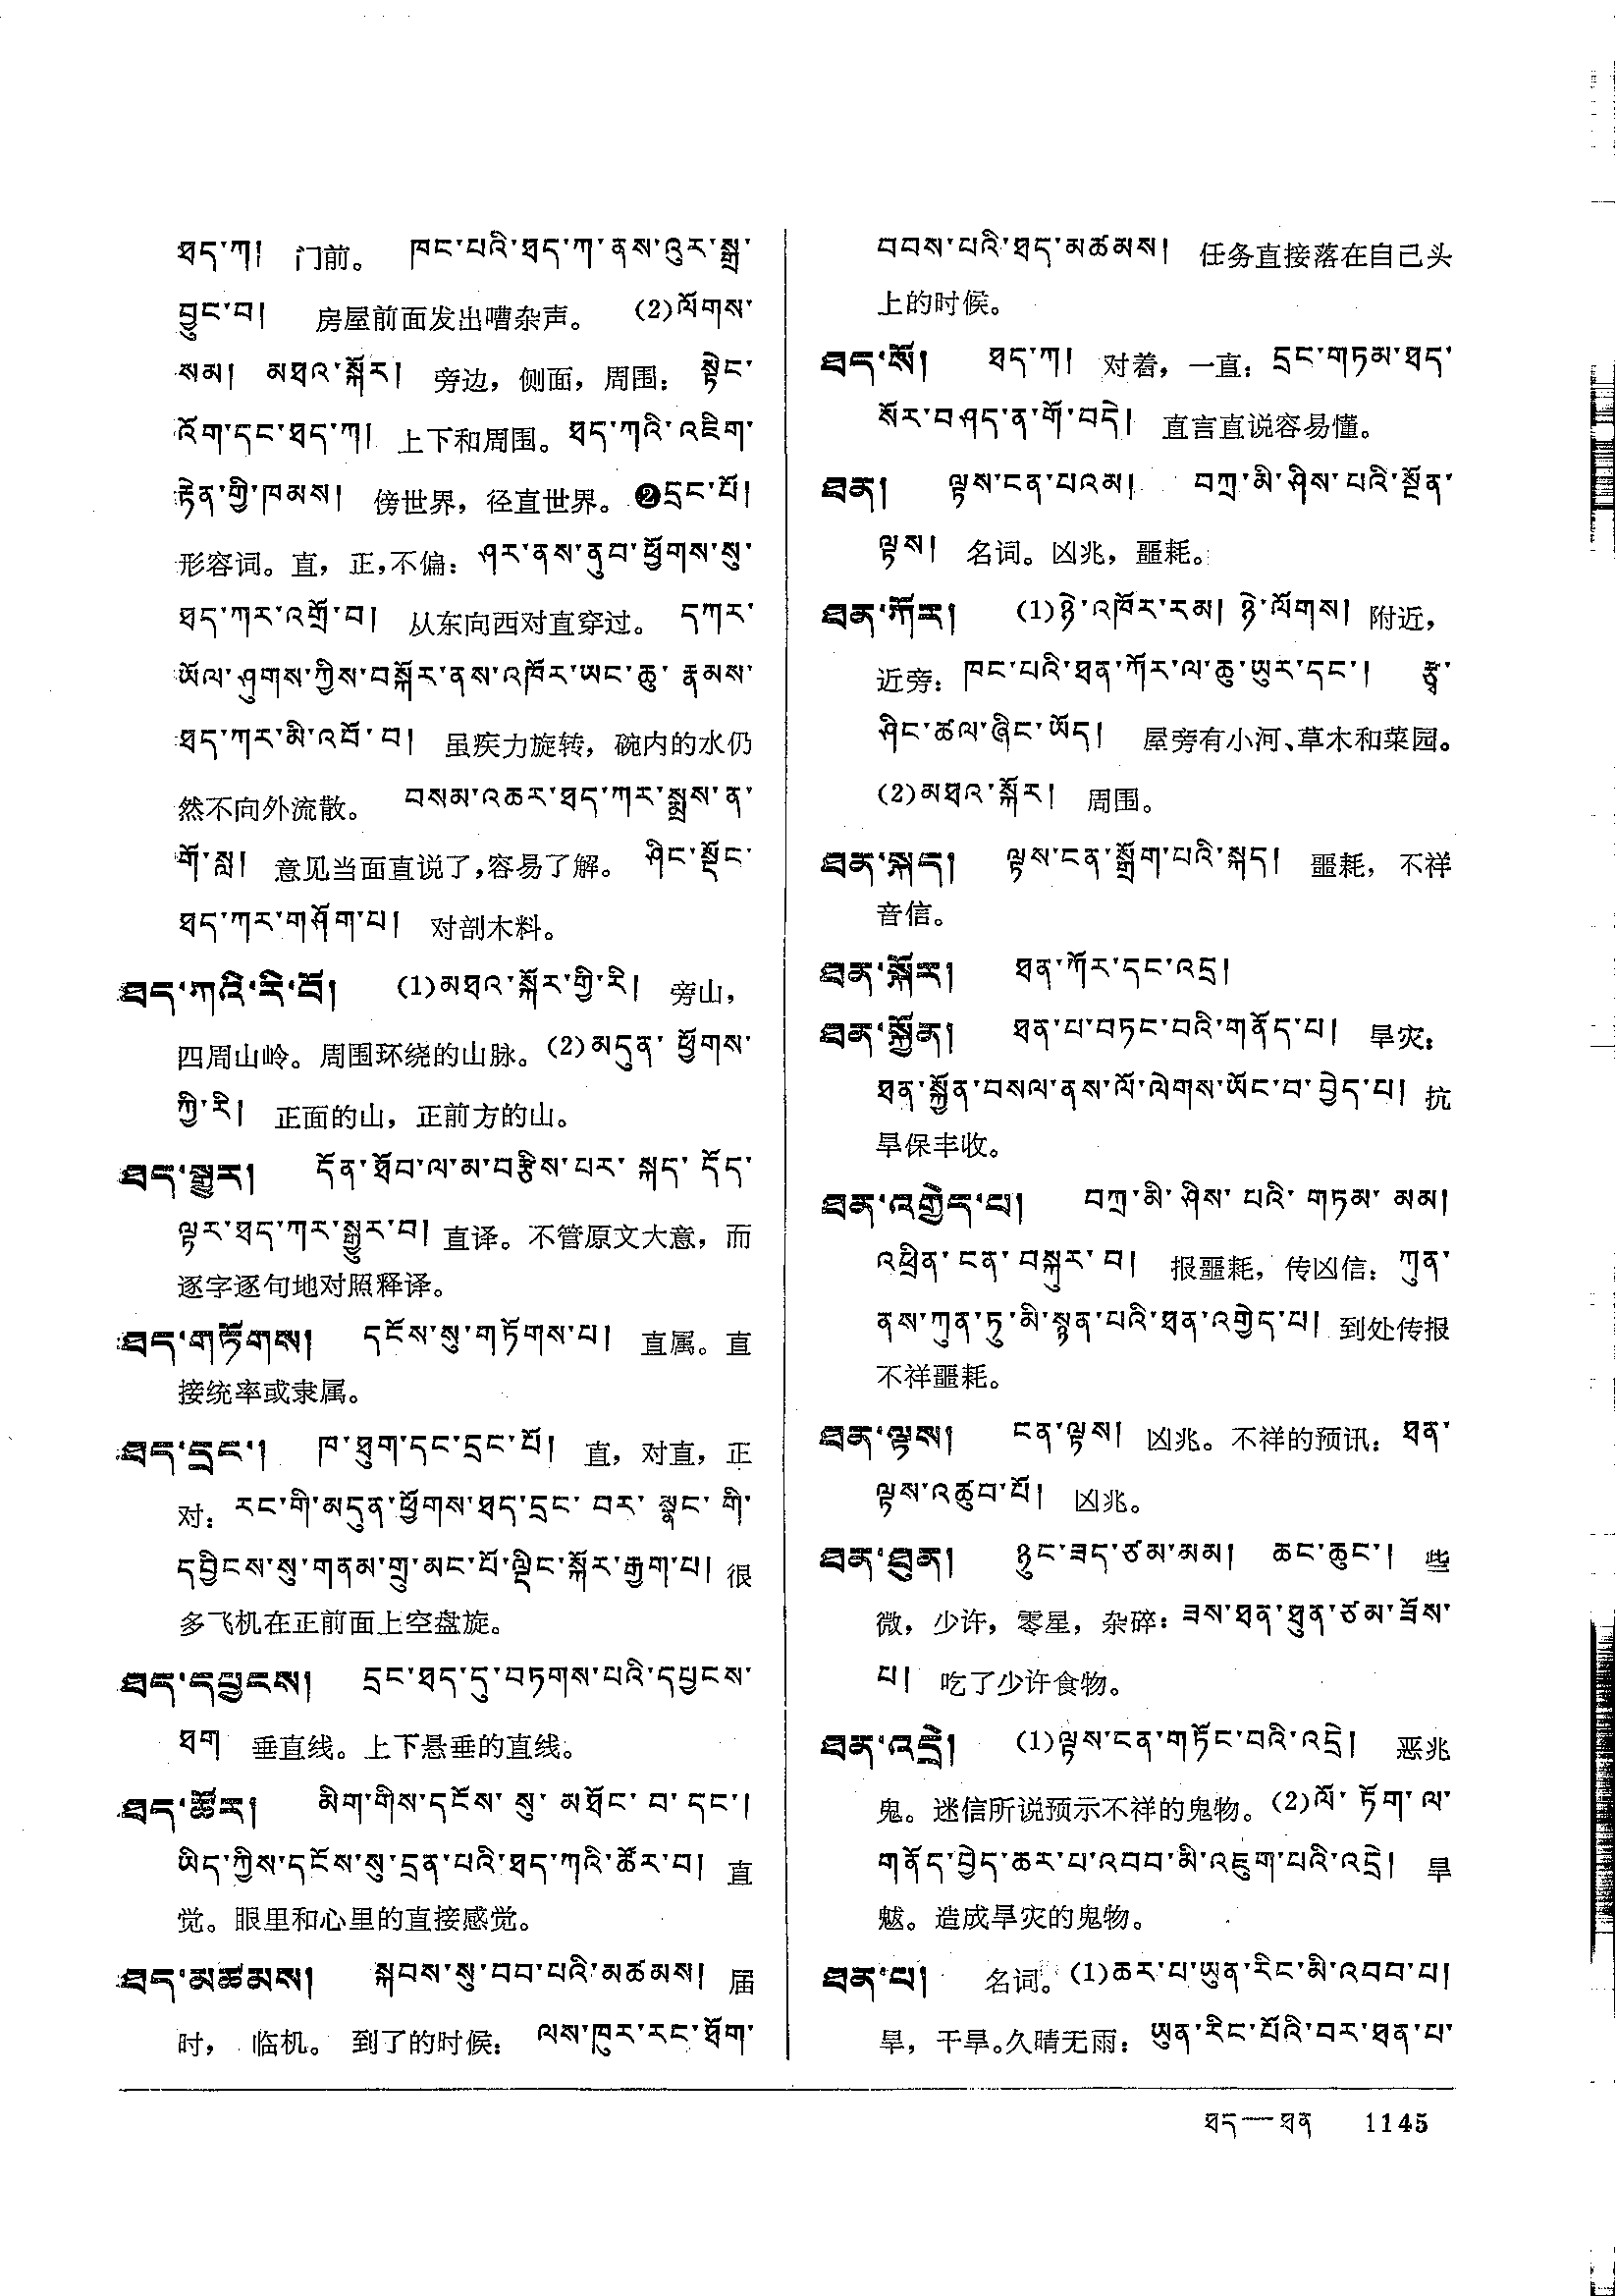 ཐད་ཀ། 门前。 ཁང་པའི་ཐད་ཀ་ནས་འུར་སྒྲ་
བྱུང་བ། 房屋前面发出嘈杂声。 (2)ལོགས་
སམ། མཐའ་སྐོར། 旁边，侧面，周围：སྟེང་
འོག་དང་ཐད་ཀ། 上下和周围。ཐད་ཀའི་འཇིག་
རྟེན་གྱི་ཁམས། 傍世界，径直世界。❷དྲང་པོ།
形容词。直，正，不偏：ཤར་ནས་ནུབ་ཕྱོགས་སུ་
ཐད་ཀར་འགྲོ་བ། 从东向西对直穿过。 དཀར་
ཡོལ་ཤུགས་ཀྱིས་བསྐོར་ནས་འཁོར་ཡང་ཆུ་རྣམས་
ཐད་ཀར་མི་འབོ་བ། 虽疾力旋转，碗内的水仍
然不向外流散。 བསམ་འཆར་ཐད་ཀར་སྨྲས་ན་
གོ་སླ། 意见当面直说了，容易了解。 ཤིང་སྡོང་
ཐད་ཀར་གཤོག་པ། 对剖木料。
ཐད་ཀའི་རི་བོ། (1)མཐའ་སྐོར་གྱི་རི། 旁山，
四周山岭。周围环绕的山脉。(2)མདུན་ཕྱོགས་
ཀྱི་རི། 正面的山，正前方的山。
ཐད་སྒྱུར། དོན་ཐོབ་ལ་མ་བརྩིས་པར་སྐད་དོད་
ལྟར་ཐད་ཀར་སྒྱུར་བ། 直译。不管原文大意，而
逐字逐句地对照释译。
ཐད་གཏོགས། དངོས་སུ་གཏོགས་པ། 直属。直
接统率或隶属。
ཐད་དྲང་། ཁ་ཐུག་དང་དྲང་པོ། 直，对直，正
对：རང་གི་མདུན་ཕྱོགས་ཐད་དྲང་བར་སྣང་གི་
དབྱིངས་སུ་གནམ་གྲུ་མང་པོ་ལྡིང་སྐོར་རྒྱག་པ། 很
多飞机在正前面上空盘旋。
ཐད་དཔྱངས། དྲང་ཐད་དུ་བཏགས་པའི་དཔྱངས་
ཐག 垂直线。上下悬垂的直线。
ཐད་ཚོར། མིག་གིས་དངོས་སུ་མཐོང་བ་དང་།
ཡིད་ཀྱིས་དངོས་སུ་དྲན་པའི་ཐད་ཀའི་ཚོར་བ། 直
觉。眼里和心里的直接感觉。
ཐད་མཚམས། སྐབས་སུ་བབ་པའི་མཚམས། 届
时，临机。到了的时候：ལས་ཁུར་རང་ཐོག་
བབས་པའི་ཐད་མཚམས། 任务直接落在自己头
上的时候。
ཐད་སོ། ཐད་ཀ། 对着，一直：དྲང་གཏམ་ཐད་
སོར་བཤད་ན་གོ་བདེ། 直言直说容易懂。
ཐན། ལྟས་ངན་པའམ། བཀྲ་མི་ཤིས་པའི་སྔོན་
ལྟས། 名词。凶兆，噩耗。
ཐན་ཀོར། (1)ཉེ་འཁོར་རམ། ཉེ་ལོགས། 附近，
近旁：ཁང་པའི་ཐན་ཀོར་ལ་ཆུ་ཡུར་དང་། རྩྭ་
ཤིང་ཚལ་ཞིང་ཡོད། 屋旁有小河、草木和菜园。
(2)མཐའ་སྐོར། 周围。
ཐན་སྐད། ལྟས་ངན་སྒྲོག་པའི་སྐད། 噩耗，不祥
音信。
ཐན་སྐོར། ཐན་ཀོར་དང་འདྲ།
ཐན་སྐྱོན། ཐན་པ་བཏང་བའི་གནོད་པ། 旱灾：
ཐན་སྐྱོན་བསལ་ནས་ལོ་ལེགས་ཡོང་བ་བྱེད་པ། 抗
旱保丰收。
ཐན་འགྱེད་པ། བཀྲ་མི་ཤིས་པའི་གཏམ་མམ།
འཕྲིན་ངན་བསྐུར་བ། 报噩耗，传凶信：ཀུན་
ནས་ཀུན་ཏུ་མི་སྟན་པའི་ཐན་འགྱེད་པ། 到处传报
不祥噩耗。
ཐན་ལྟས། ངན་ལྟས། 凶兆。不祥的预讯：ཐན་
ལྟས་འཚུབ་པོ། 凶兆。
ཐན་ཐུན། ཉུང་ཟད་ཙམ་མམ། ཆང་ཆུང་། 些
微，少许，零星，杂碎：ཟས་ཐན་ཐུན་ཙམ་ཟོས་
པ། 吃了少许食物。
ཐན་འདྲེ། (1)ལྟས་ངན་གཏོང་བའི་འདྲེ། 恶兆
鬼。迷信所说预示不祥的鬼物。(2)ལོ་ཏོག་ལ་
གནོད་བྱེད་ཆར་པ་འབབ་མི་འཇུག་པའི་འདྲེ། 旱
魃。造成旱灾的鬼物。
ཐན་པ། 名词。(1)ཆར་པ་ཡུན་རིང་མི་འབབ་པ།
旱，干旱。久晴无雨：ཡུན་རིང་པོའི་བར་ཐན་པ་
ཐད—ཐན 1145